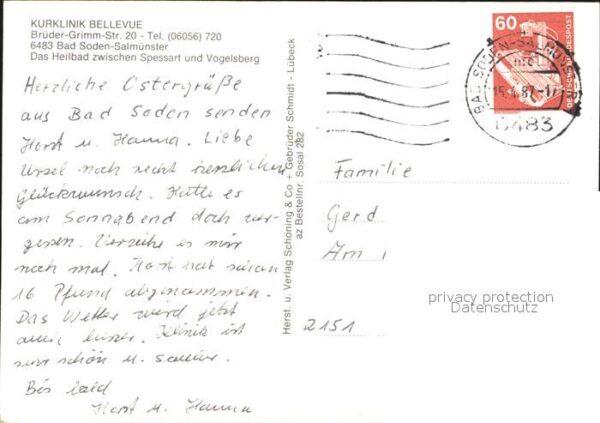 KURKLINIK BELLEVUE
Brüder-Grimm-Str. 20 - Tel. (06056) 720
6483 Bad Soden-Salmünster
Das Heilbad zwischen Spessart und Vogelsberg
Herzliche Ostergrüße
aus Bad Soden senden
Horst u. Hanna. Liebe
Ursel noch recht herzlichen
Glückwunsch. Hatte es
am Sonnabend doch ver-
gessen. Verzeihe es mir
noch mal. Horst hat schon
16 Pfund abgenommen.
Das Wetter wird jetzt
auch besser. Klinik ist
sehr schön u. sauber.
Bis bald
Horst u. Hanna
Herst. u. Verlag Schöning & Co + Gebrüder Schmidt - Lübeck
az Bestellnr. Sosal 282
60
DEUTSCHE BUNDESPOST
BAD SODEN-SALMÜNSTER
15.4.87-17
6483
Familie
Gerd
Am
2151
privacy protection
Datenschutz